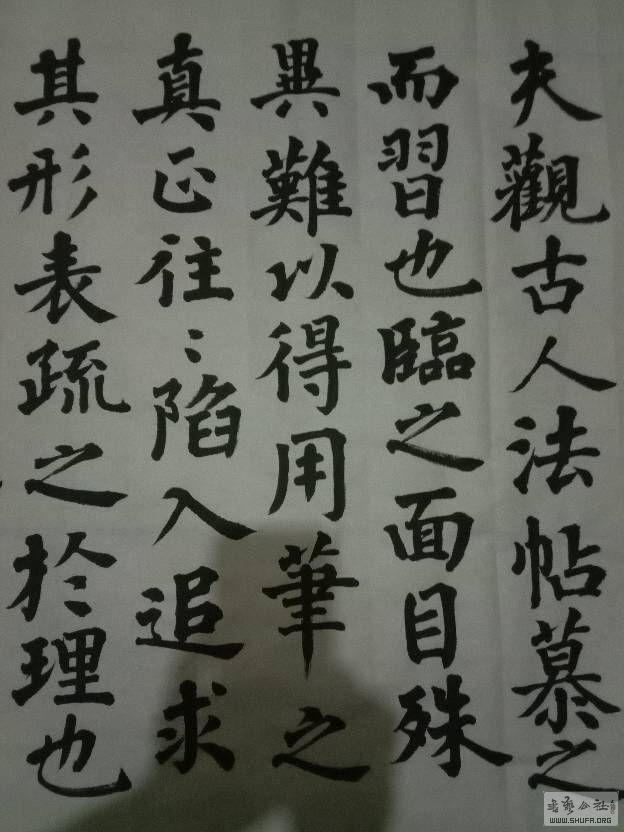 夫觀古人法帖慕之
而習也臨之面目殊
異難以得用筆之
真正往〻陷入追求
其形表疏之於理也
書藝公社
WWW.SHUFA.ORG